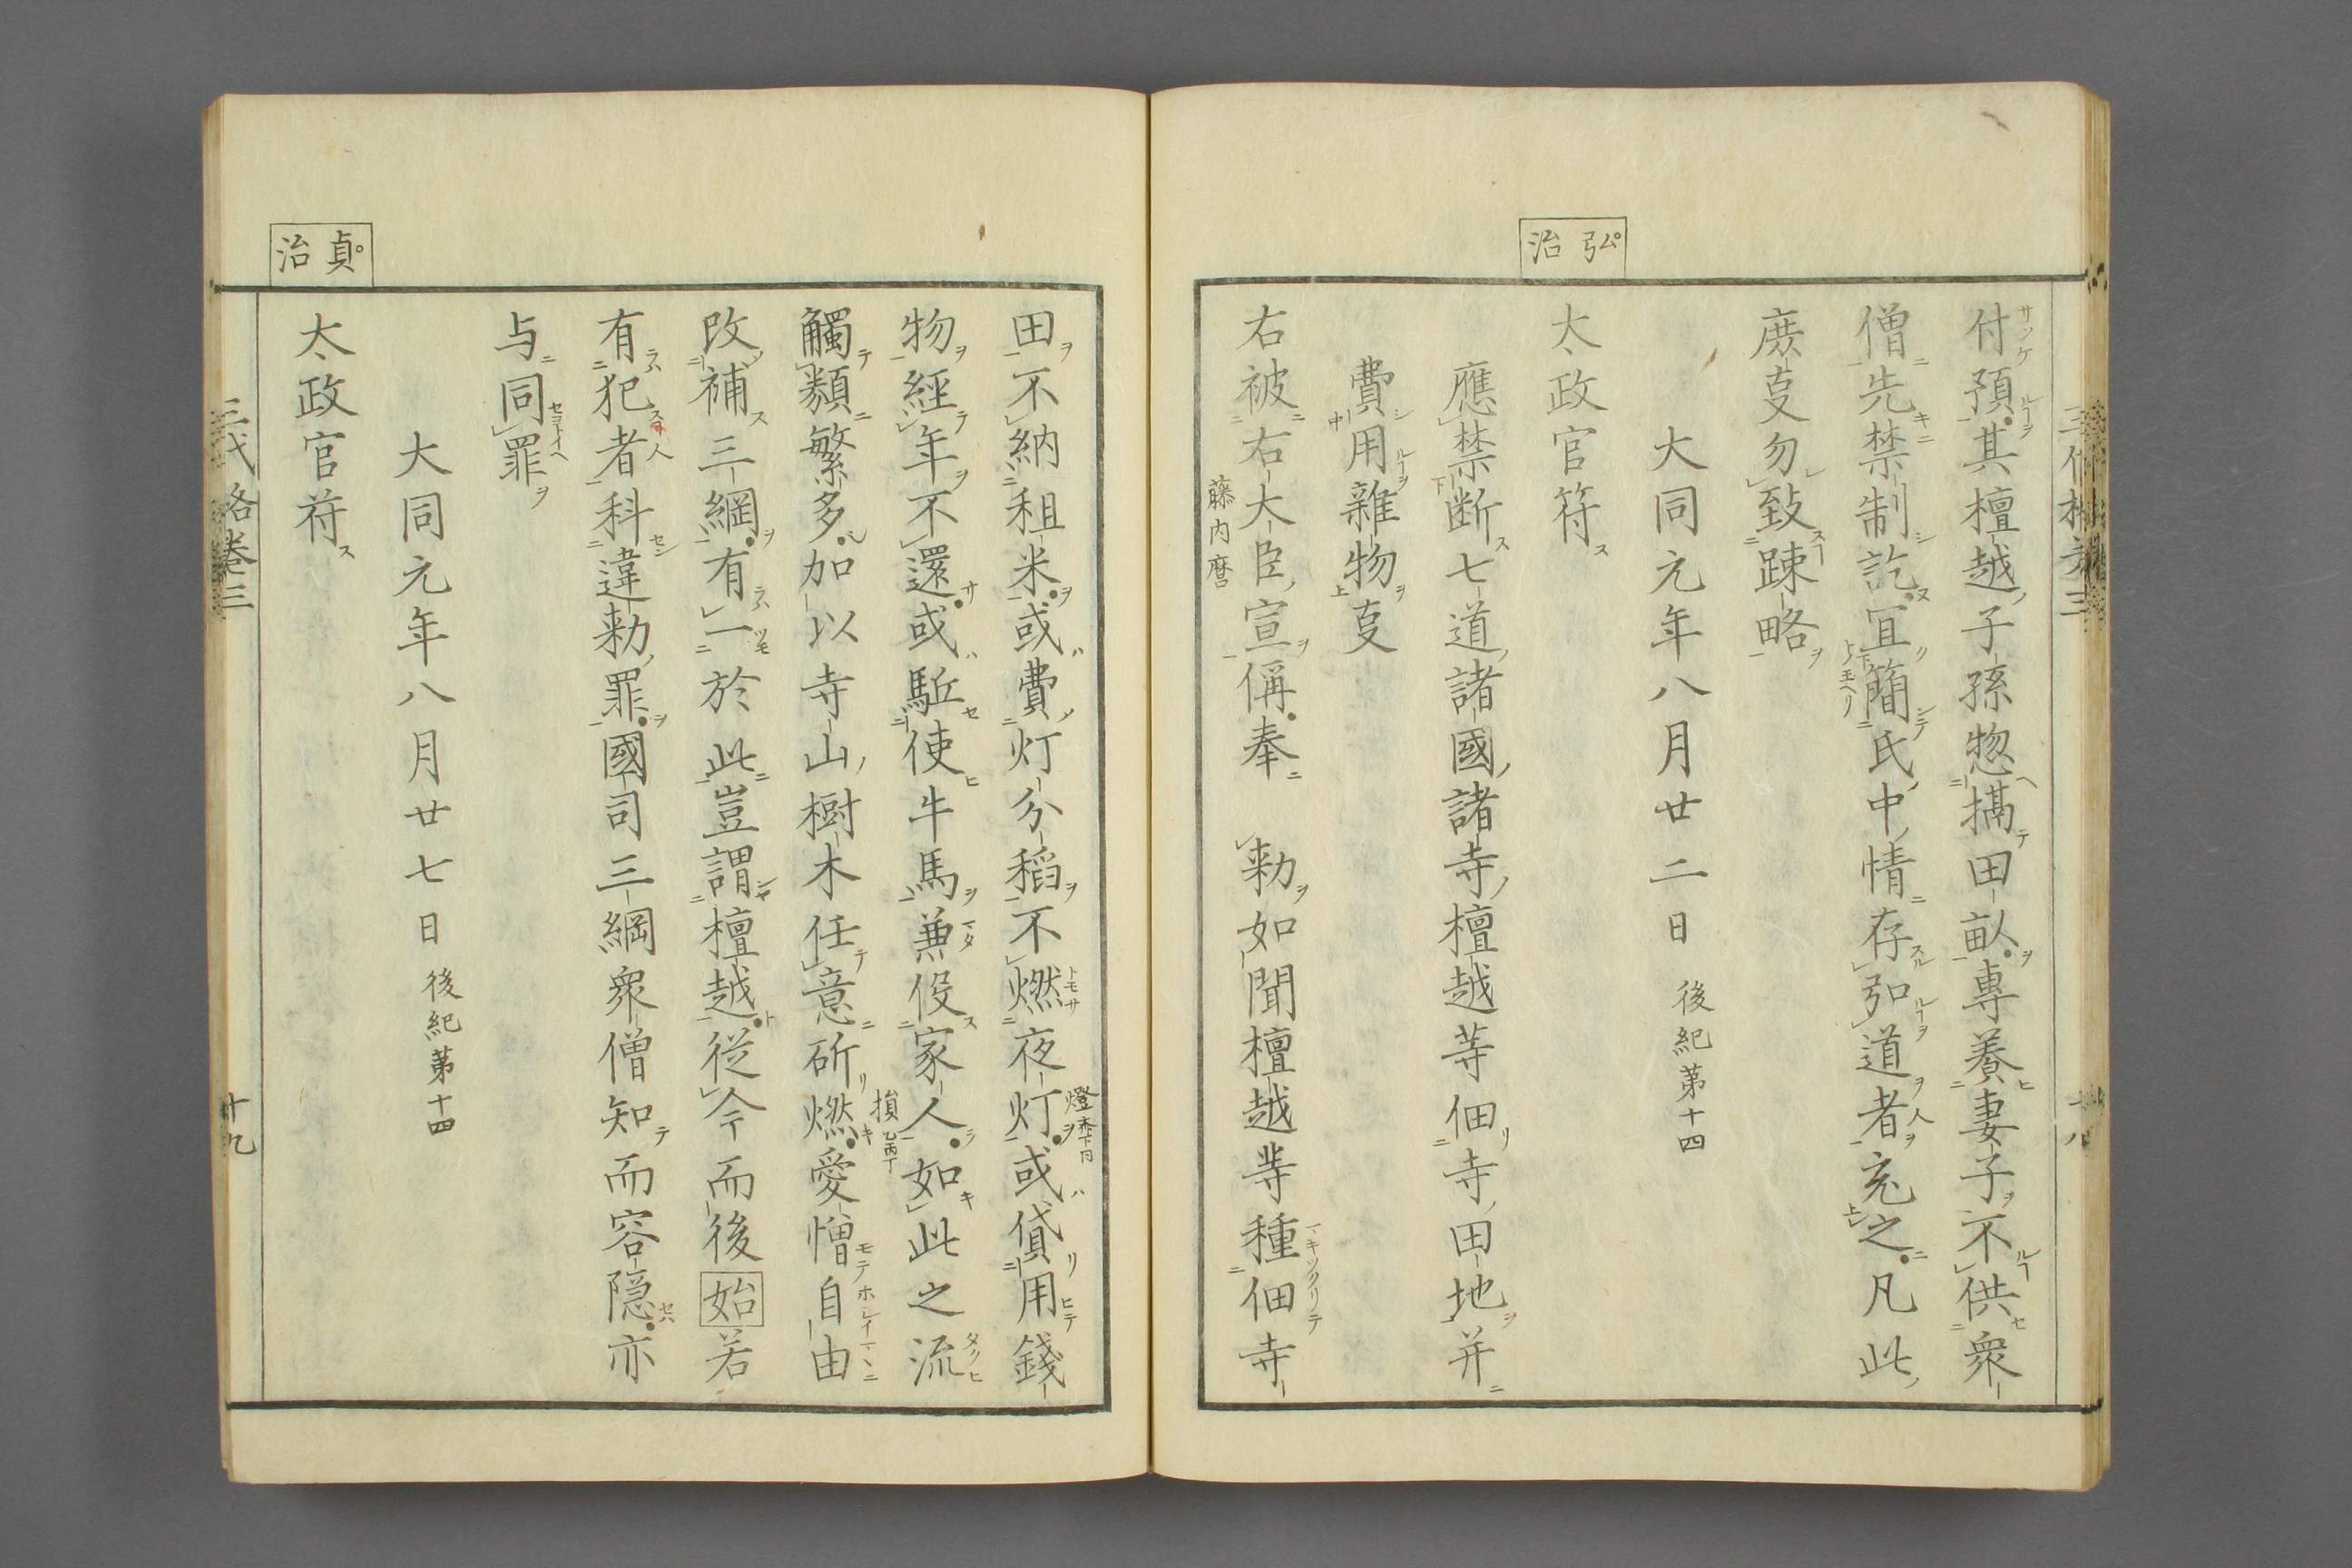 弘治
付預其檀越子孫惣攝田畝專養妻子不供衆
僧先禁制訖冝簡氏中情存弘道者充之凡此
庶㕝勿致踈略
大同元年八月廿二日 後紀第十四
太政官符
應禁断七道諸國諸寺檀越等佃寺田地并
費用雜物㕝
右被右大臣宣偁奉 勅如聞檀越等種佃寺
藤内麿
貞治
田不納租米或費灯分稻不燃夜灯或貸用錢
物經年不還或駈使牛馬兼役家人如此之流
觸類繁多加以寺山樹木任意斫燃愛憎自由
改補三綱有一於此豈謂檀越從今而後始若
有犯者科違勅罪國司三綱衆僧知而容隠亦
与同罪
大同元年八月廿七日 後紀第十四
太政官符
三代格卷三
十九